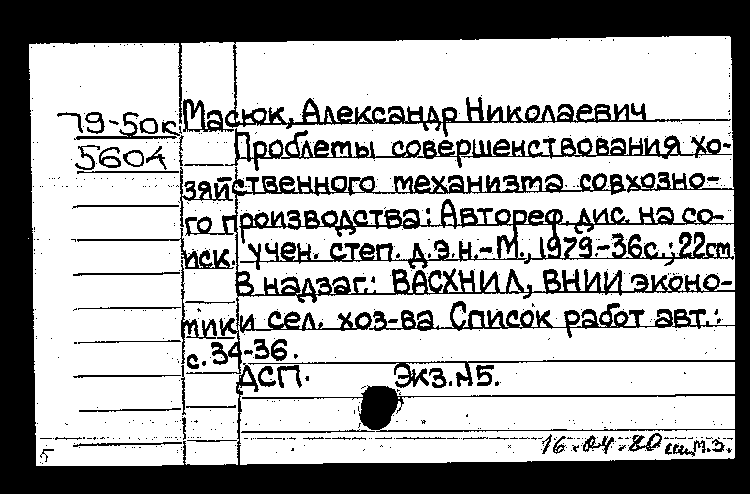 79-50к
5604
Масюк, Александр Николаевич
Проблемы совершенствования хо-
зяйственного механизма совхозно-
го производства: Автореф. дис. на со-
иск. учен. степ. д.э.н.-М., 1979.-36с.; 22см
В надзаг.: ВАСХНИЛ, ВНИИ эконо-
мики сел. хоз-ва. Список работ авт.:
с. 34-36.
ДСП. Экз.№5.
16-04-80
5